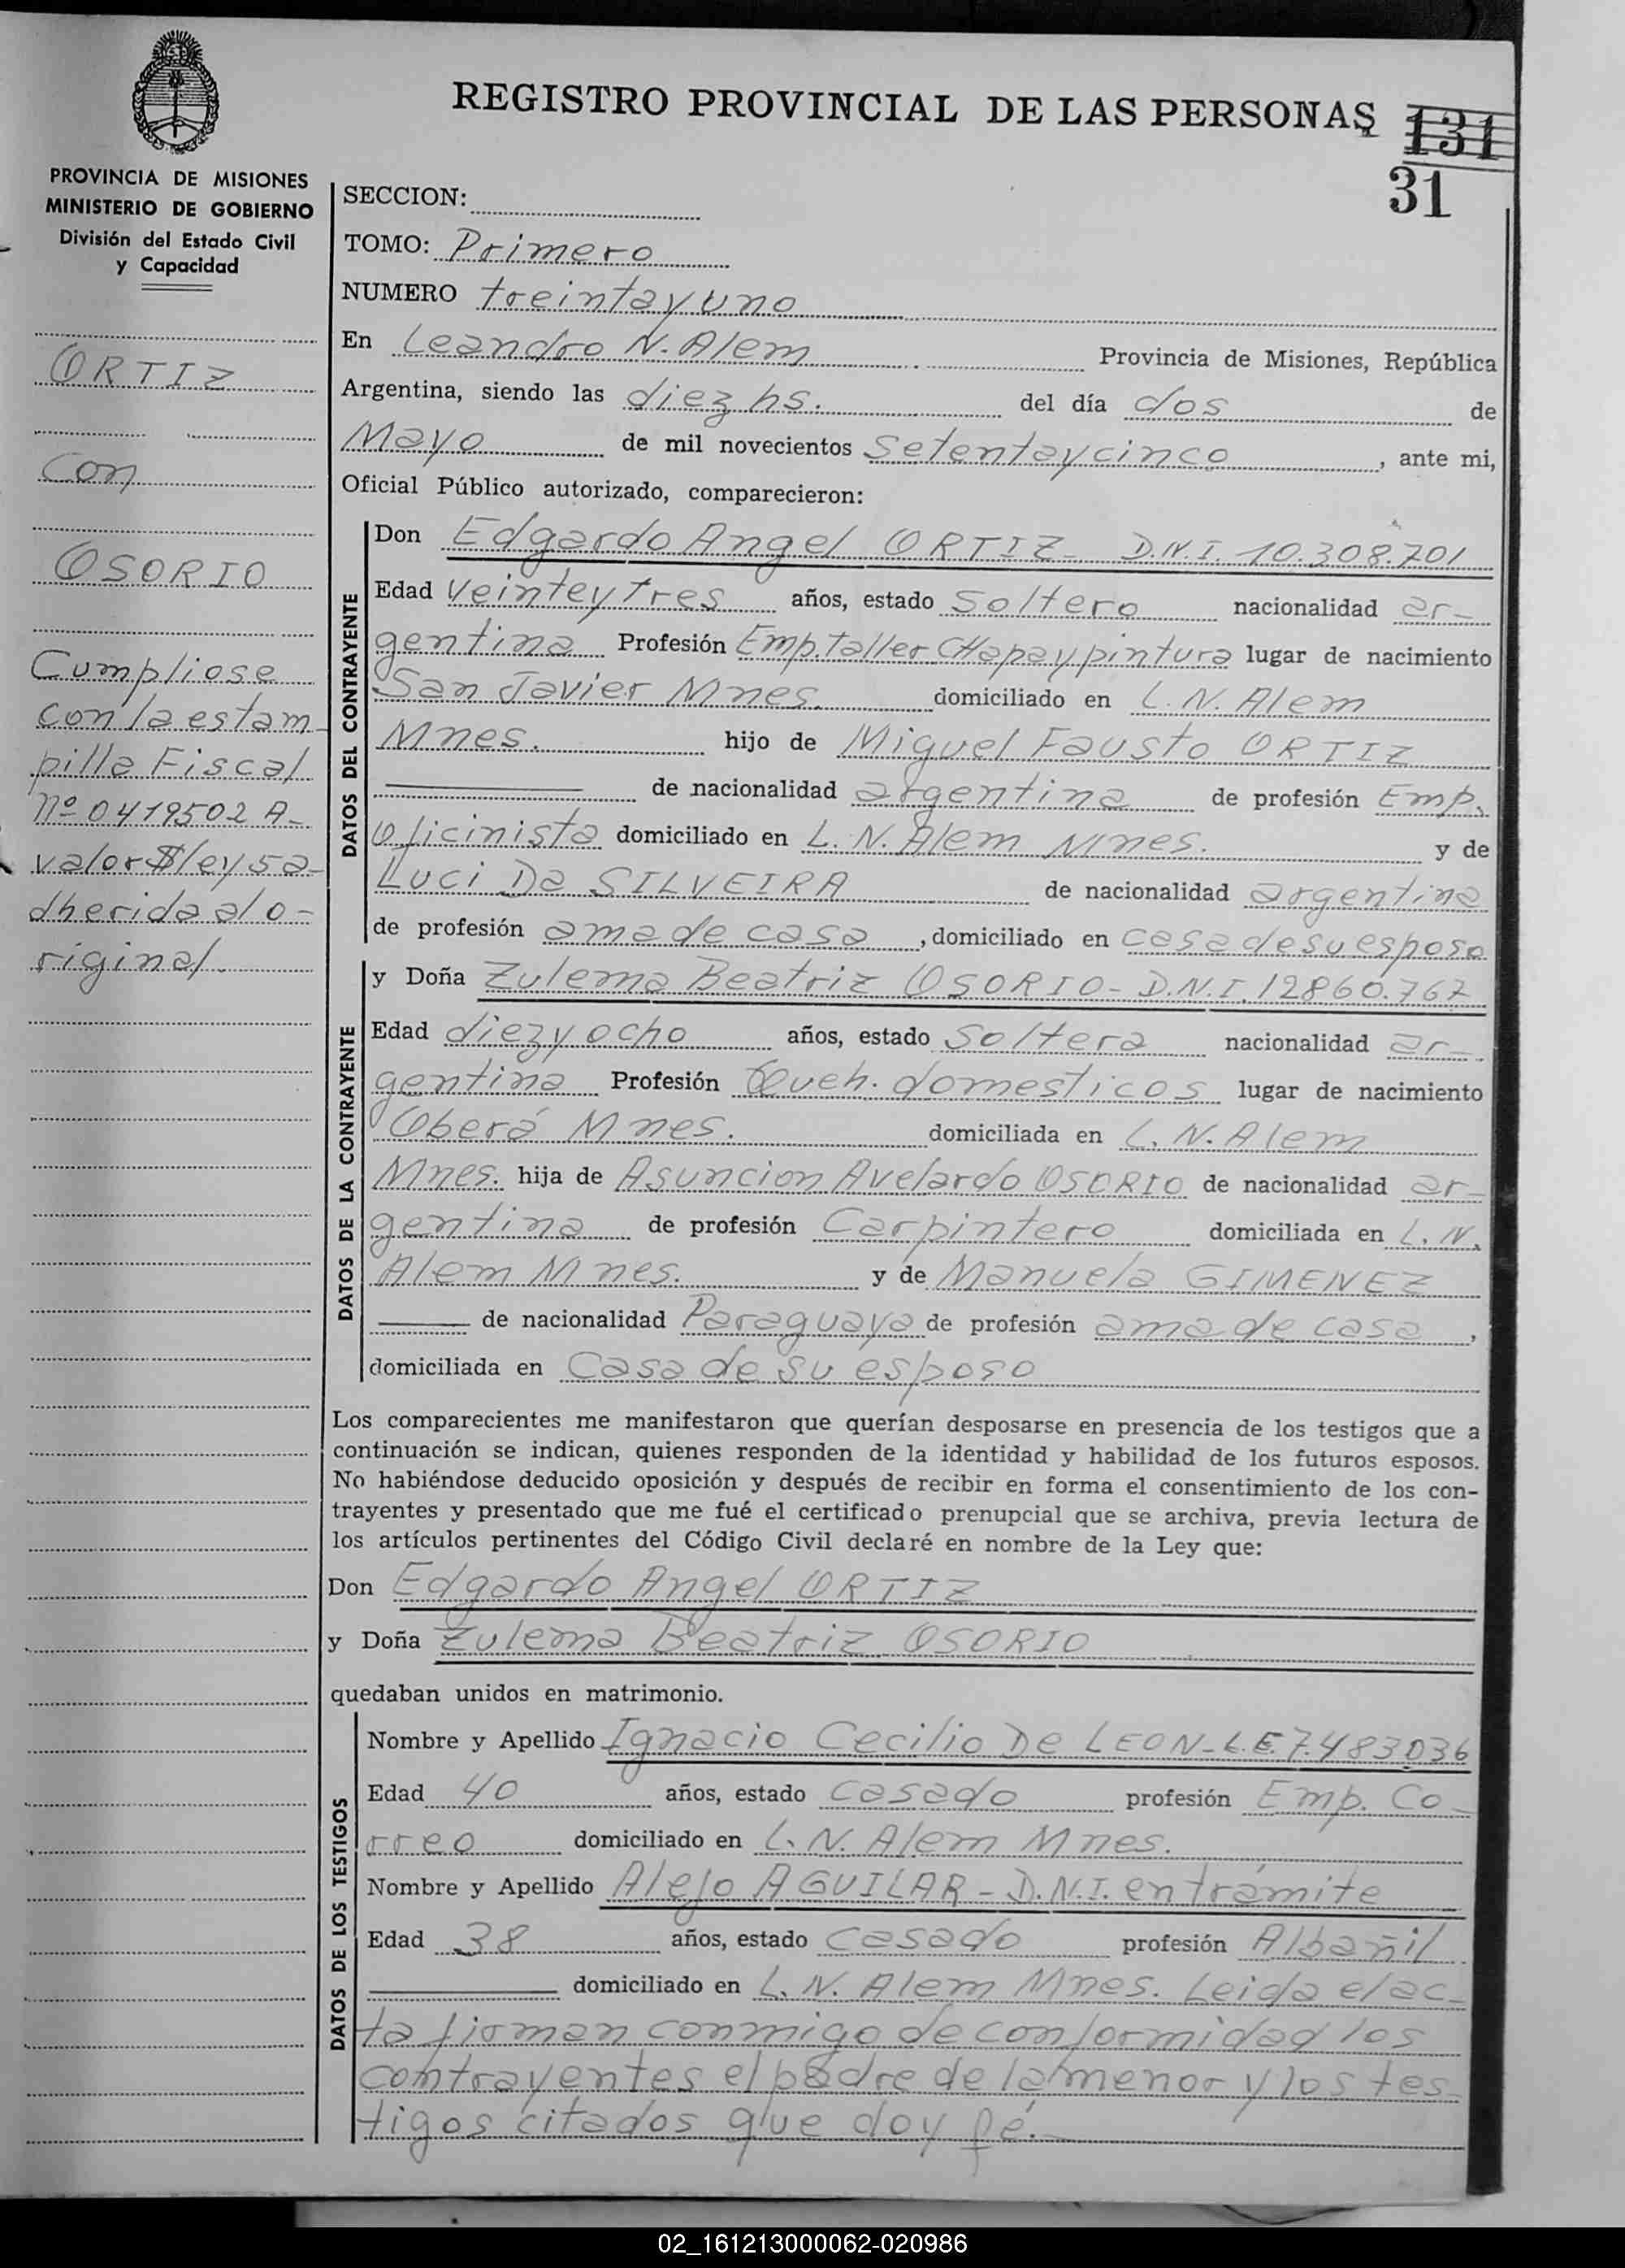 REGISTRO PROVINCIAL DE LAS PERSONAS
131
31
PROVINCIA DE MISIONES
MINISTERIO DE GOBIERNO
División del Estado Civil
y Capacidad
ORTIZ
con
OSORIO
Cumpliose
con la estam
pilla Fiscal
nº 0419502 A-
valor $ ley 5 a-
dherida al o-
riginal.
SECCION:
TOMO: Primero
NUMERO treinta y uno
En Leandro N. Alem Provincia de Misiones, República
Argentina, siendo las diez hs. del día dos de
Mayo de mil novecientos setenta y cinco, ante mi,
Oficial Público autorizado, comparecieron:
DATOS DEL CONTRAYENTE
Don Edgardo Angel ORTIZ D.N.I. 10.308.701
Edad veinte y tres años, estado soltero nacionalidad ar-
gentina Profesión Emp. Taller CHapa y pintura lugar de nacimiento
San Javier Mnes. domiciliado en L. N. Alem
Mnes. hijo de Miguel Fausto ORTIZ
de nacionalidad argentina de profesión Emp.
oficinista domiciliado en L. N. Alem Mnes. y de
Luci Da SILVEIRA de nacionalidad argentina
de profesión ama de casa, domiciliado en casa de su esposo
DATOS DE LA CONTRAYENTE
y Doña Zulema Beatriz OSORIO - D.N.I. 12860.767
Edad diez y ocho años, estado Soltera nacionalidad ar-
gentina Profesión Queh. domesticos lugar de nacimiento
Oberá Mnes. domiciliada en L. N. Alem
Mnes. hija de Asuncion Avelardo OSORIO de nacionalidad ar-
gentina de profesión Carpintero domiciliada en L. N.
Alem Mnes. y de Manuela GIMENEZ
de nacionalidad Paraguaya de profesión ama de casa,
domiciliada en Casa de su esposo
Los comparecientes me manifestaron que querían desposarse en presencia de los testigos que a
continuación se indican, quienes responden de la identidad y habilidad de los futuros esposos.
No habiéndose deducido oposición y después de recibir en forma el consentimiento de los con-
trayentes y presentado que me fué el certificado prenupcial que se archiva, previa lectura de
los artículos pertinentes del Código Civil declaré en nombre de la Ley que:
Don Edgardo Angel ORTIZ
y Doña Zulema Beatriz OSORIO
quedaban unidos en matrimonio.
DATOS DE LOS TESTIGOS
Nombre y Apellido Ignacio Cecilio De LEON - L.E. 7.483036
Edad 40 años, estado casado profesión Emp. Co-
rreo domiciliado en L. N. Alem Mnes.
Nombre y Apellido Alejo AGUILAR - D.N.I. en trámite
Edad 38 años, estado casado profesión Albañil
domiciliado en L. N. Alem Mnes. Leida el ac-
ta firman conmigo de conformidad los
contrayentes el padre de la menor y los tes-
tigos citados que doy fé.-
02_161213000062-020986